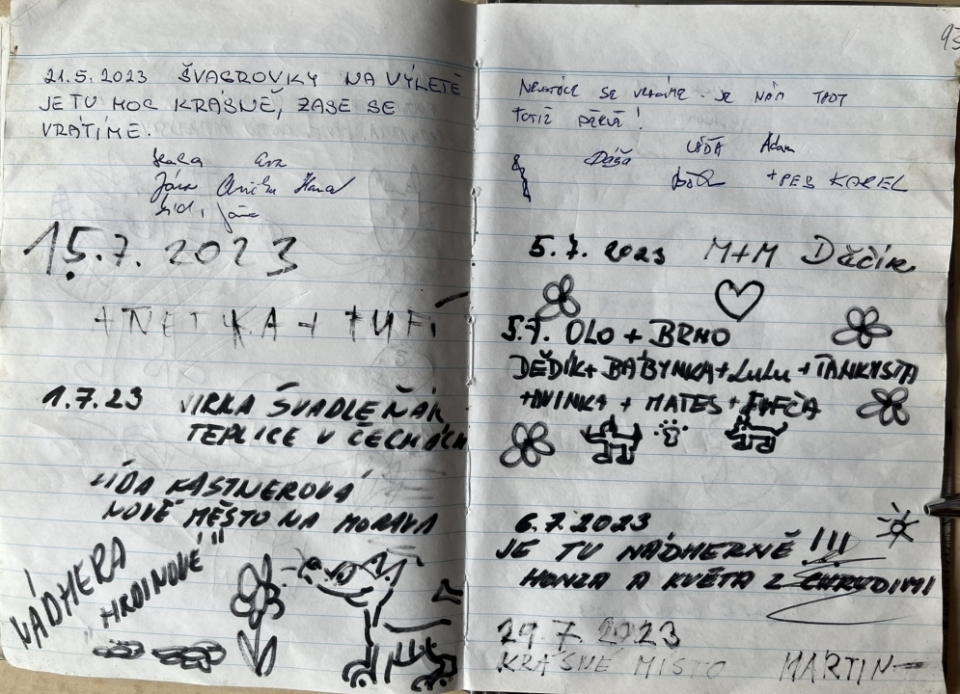 21.5.2023 ŠVAGROVKY NA VÝLETĚ
JE TU MOC KRÁSNĚ, ZASE SE
VRÁTÍME.
Jana
15.7.2023
ANETKA +
1.7.23 JIRKA ŠVADLEŇÁK
TEPLICE V ČECHÁCH
LÍDA KASTNEROVÁ
NOVÉ MĚSTO NA MORAVĚ
NÁDHERA
HRDINOVÉ !!!
93
SE VRÁTÍME. JE NÁM TADY
TOTIŽ
Dáša LÍDA Adam
+ PES KAREL
5.7.2023 M+M Dačice
5.7. OLO + BRNO
DĚDÍK + BABYNKA + LuLu + TANKYSTA
+ MATES +
6.7.2023
JE TU NÁDHERNĚ !!!
HONZA A KVĚTA Z CHRUDIMI
29.7.2023
KRÁSNÉ MÍSTO MARTIN